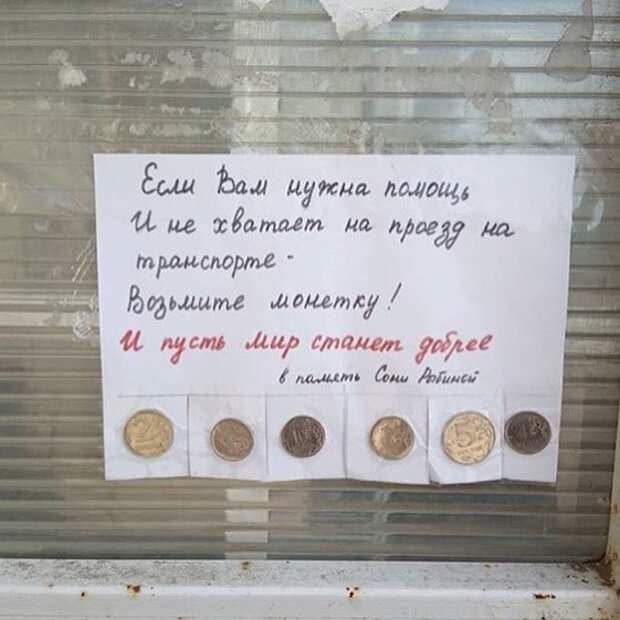 Если Вам нужна помощь
И не хватает на проезд на
транспорте -
Возьмите монетку!
И пусть мир станет добрее
в память Сони
5